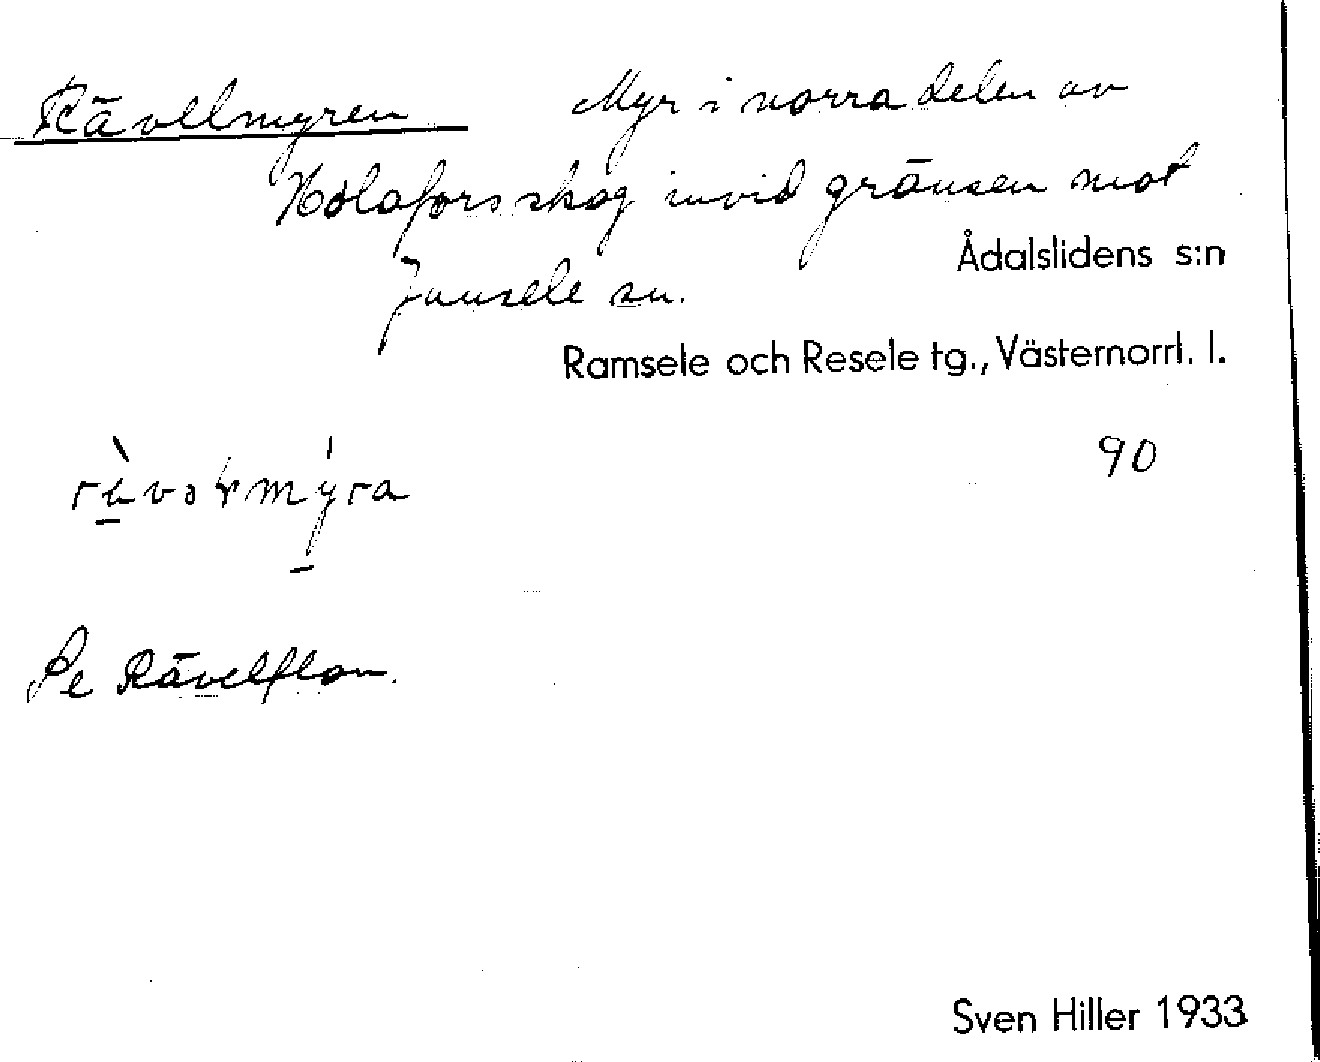 Rävelmyren Myr i norra delen av
Holafors skog invid gränsen mot
Ådalslidens s:n
Junsele sn.
Ramsele och Resele tg., Västernorrl. l.
90
Se Rävelflon.
Sven Hiller 1933